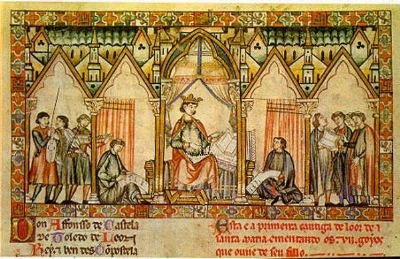 Don Affonsso de Castela
De Toledo de Leon
Rey e ben des Conpostela
Esta e a primeira cantiga de loor de
santa maria ementando os .VII. goyos
que ouue de seu fillo.